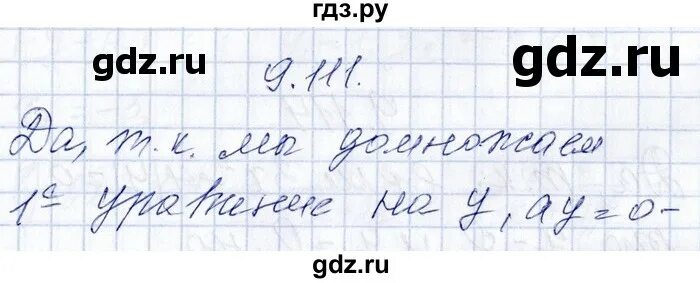 гдз.ру
gdz.ru gdz.ru
9.111.
Да, т.к. мы домножаем
1ᵉ уравнение на y, а y=0-
gdz.ru